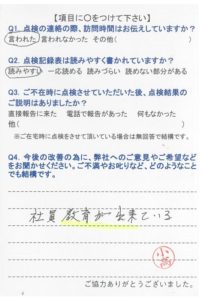 【項目に○をつけて下さい】
Q1. 点検の連絡の際、訪問時間はお伝えしていますか?
言われた 言われなかった その他( )
Q2. 点検記録表は読みやすく書かれていますか?
読みやすい 一応読める 読みづらい 読めない部分がある
Q3. ご不在時に点検させていただいた後、点検結果の
ご説明はありましたか?
直接報告に来た 電話で報告があった 何もなかった
他( )
※ご在宅時に点検をさせて頂いている場合は無回答で結構です。
Q4. 今後の改善の為に、弊社へのご意見やご希望など
をお聞かせください。ご不満やお叱りなど、どのようなこと
でも結構です。
社員教育が出来ている
小高
ご協力ありがとうございました。